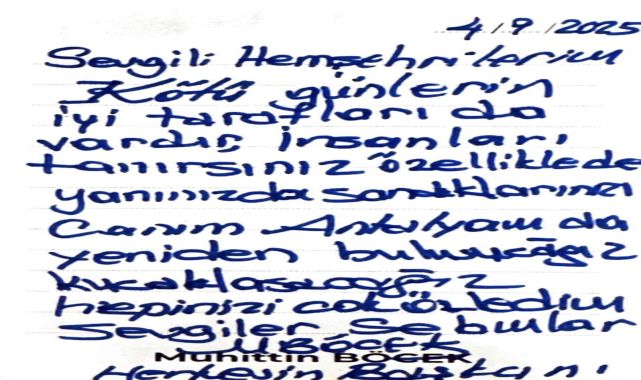 4/9/2025
Sevgili Hemşehrilerim
Kötü günlerin
iyi tarafları da
vardır, insanları
tanırsınız özelliklede
yanınızda sandıklarınızı
Canım Antalyam da
yeniden buluşacağız
kucaklaşacağız
hepinizi çok özledim
Sevgiler Selamlar
M BÖCEK
Muhittin BÖCEK
Herkesin Başkanı